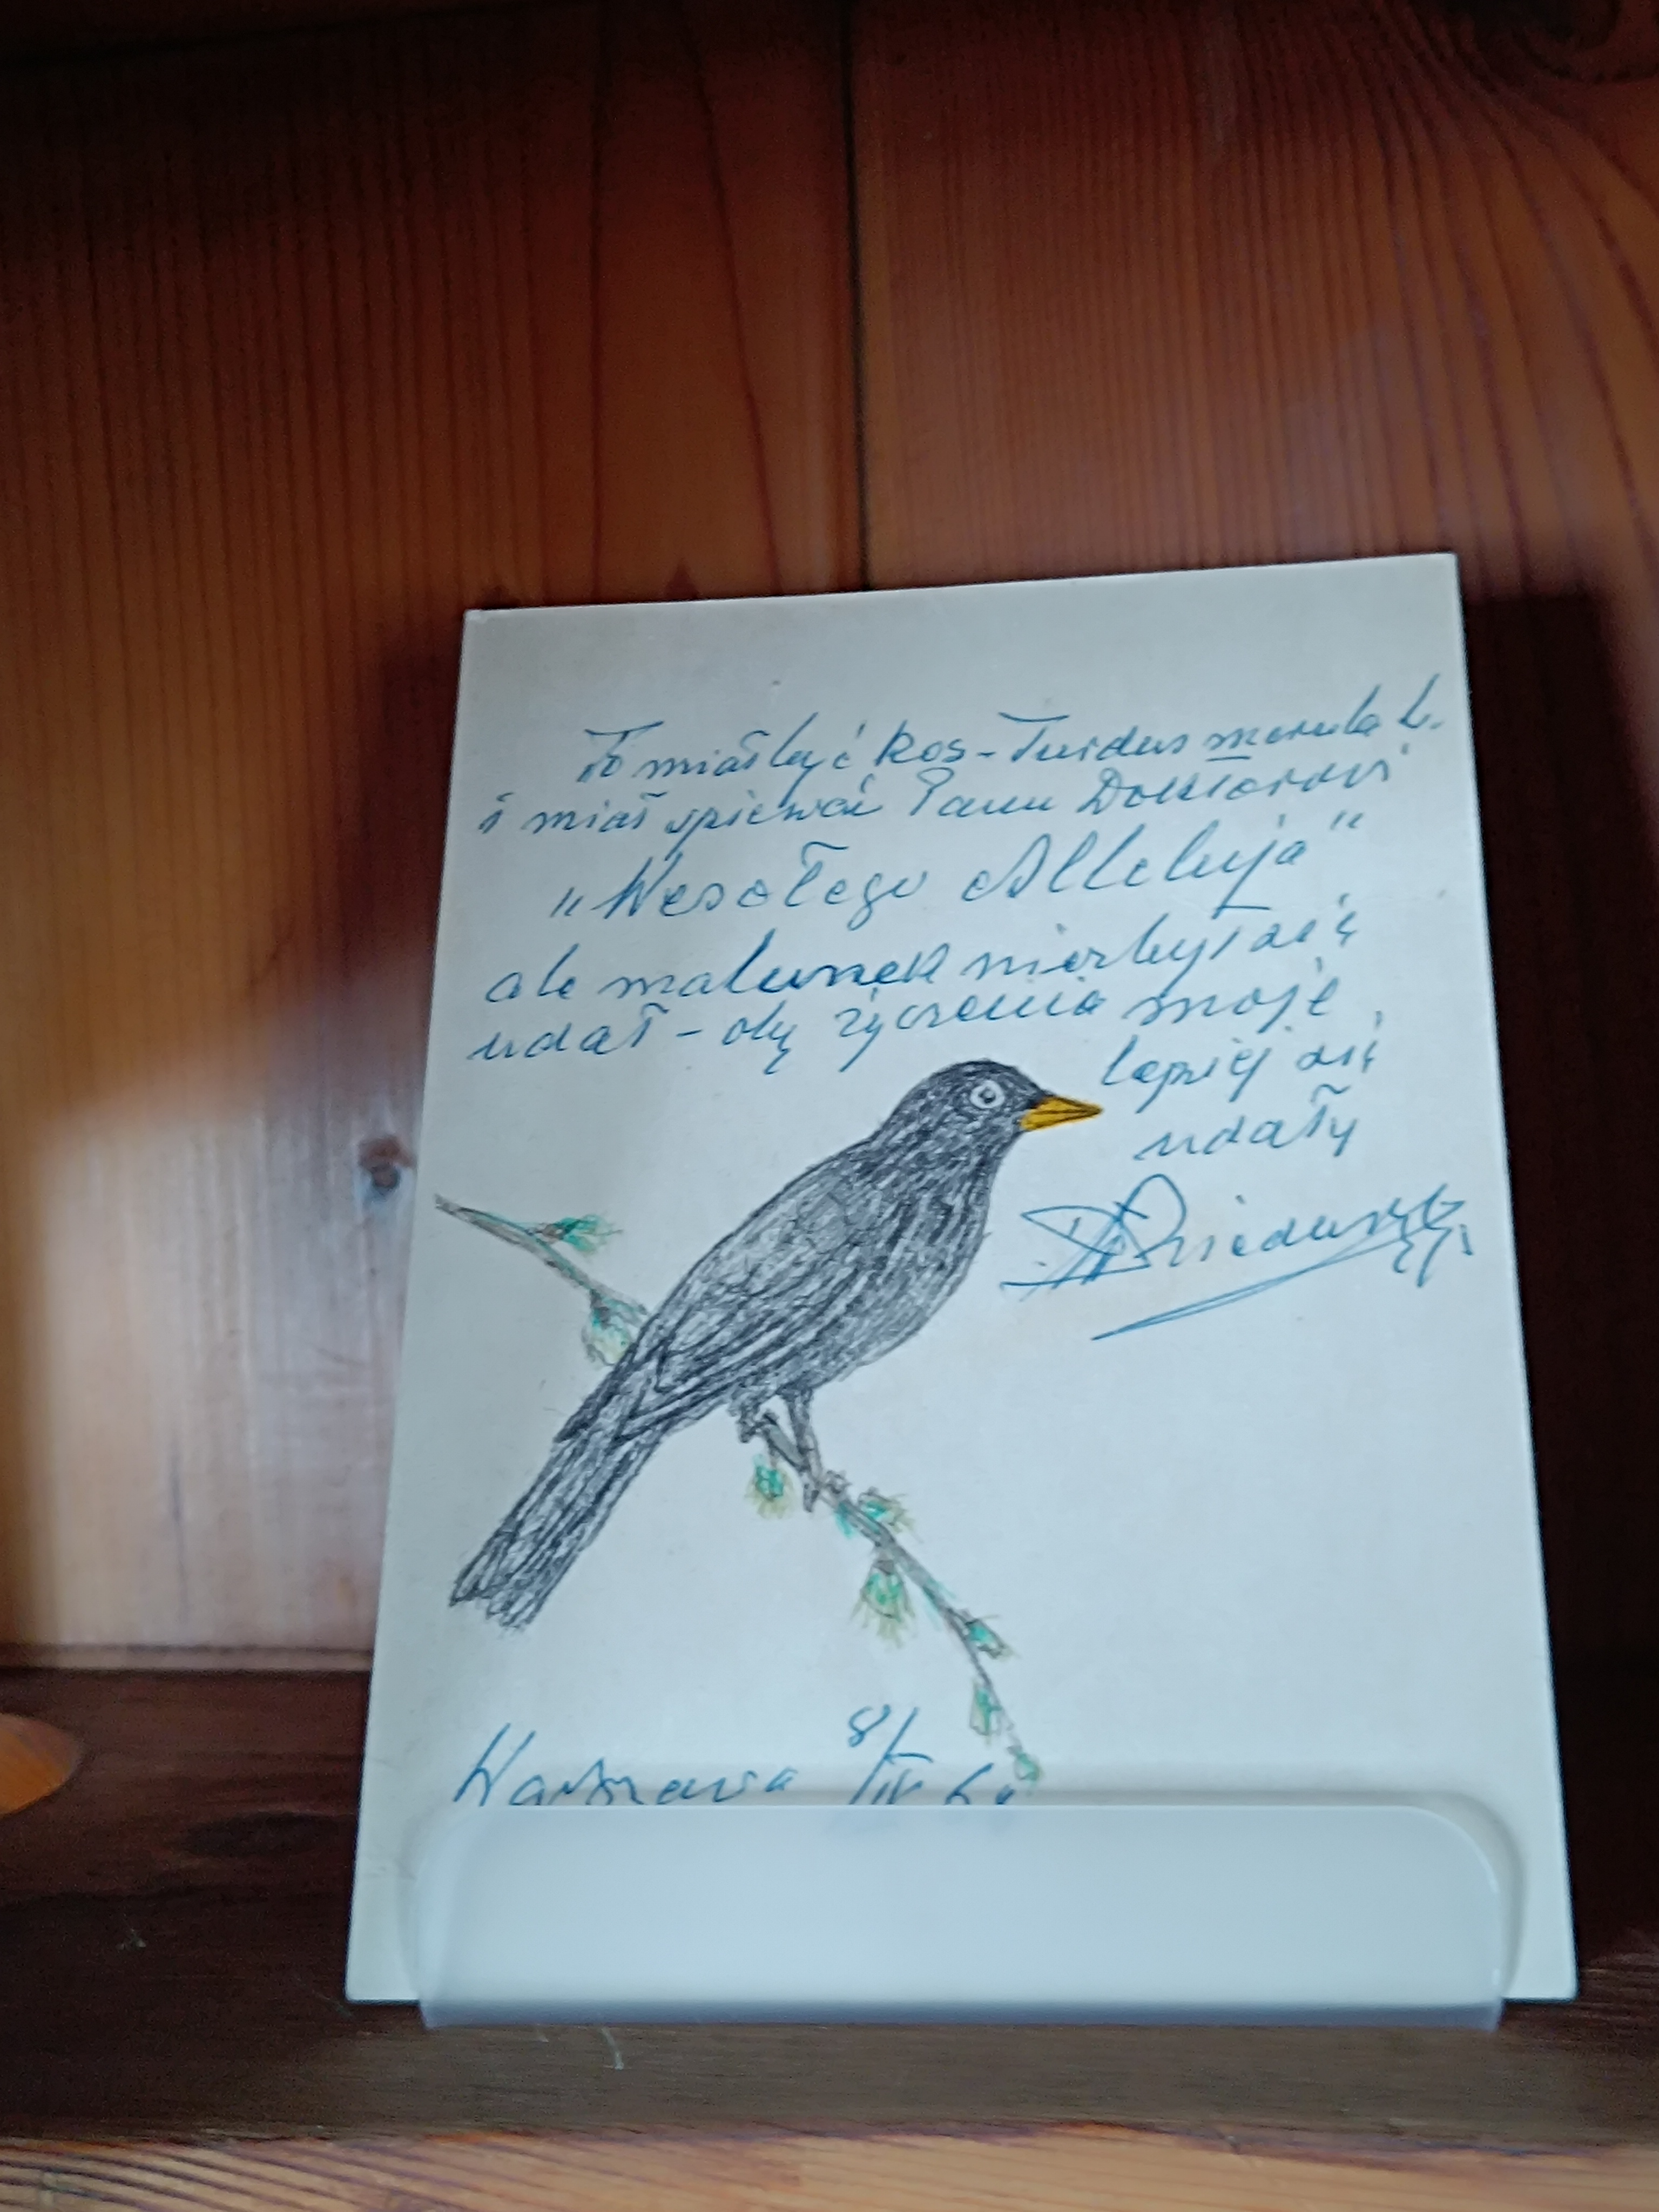 To miał być Kos - Turdus merula L.
i miał śpiewać Panu Doktorowi
„Wesołego Alleluja"
ale malunek niezbyt się
udał - oby życzenia moje
lepiej się
udały
Warszawa 8/IV